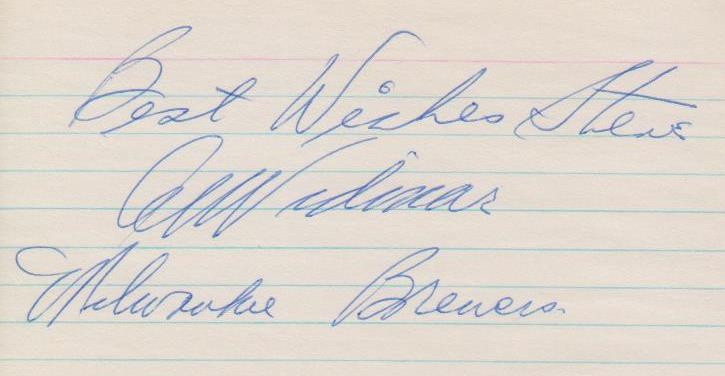 Best Wishes Steve
Al Widmar
Milwaukee Brewers